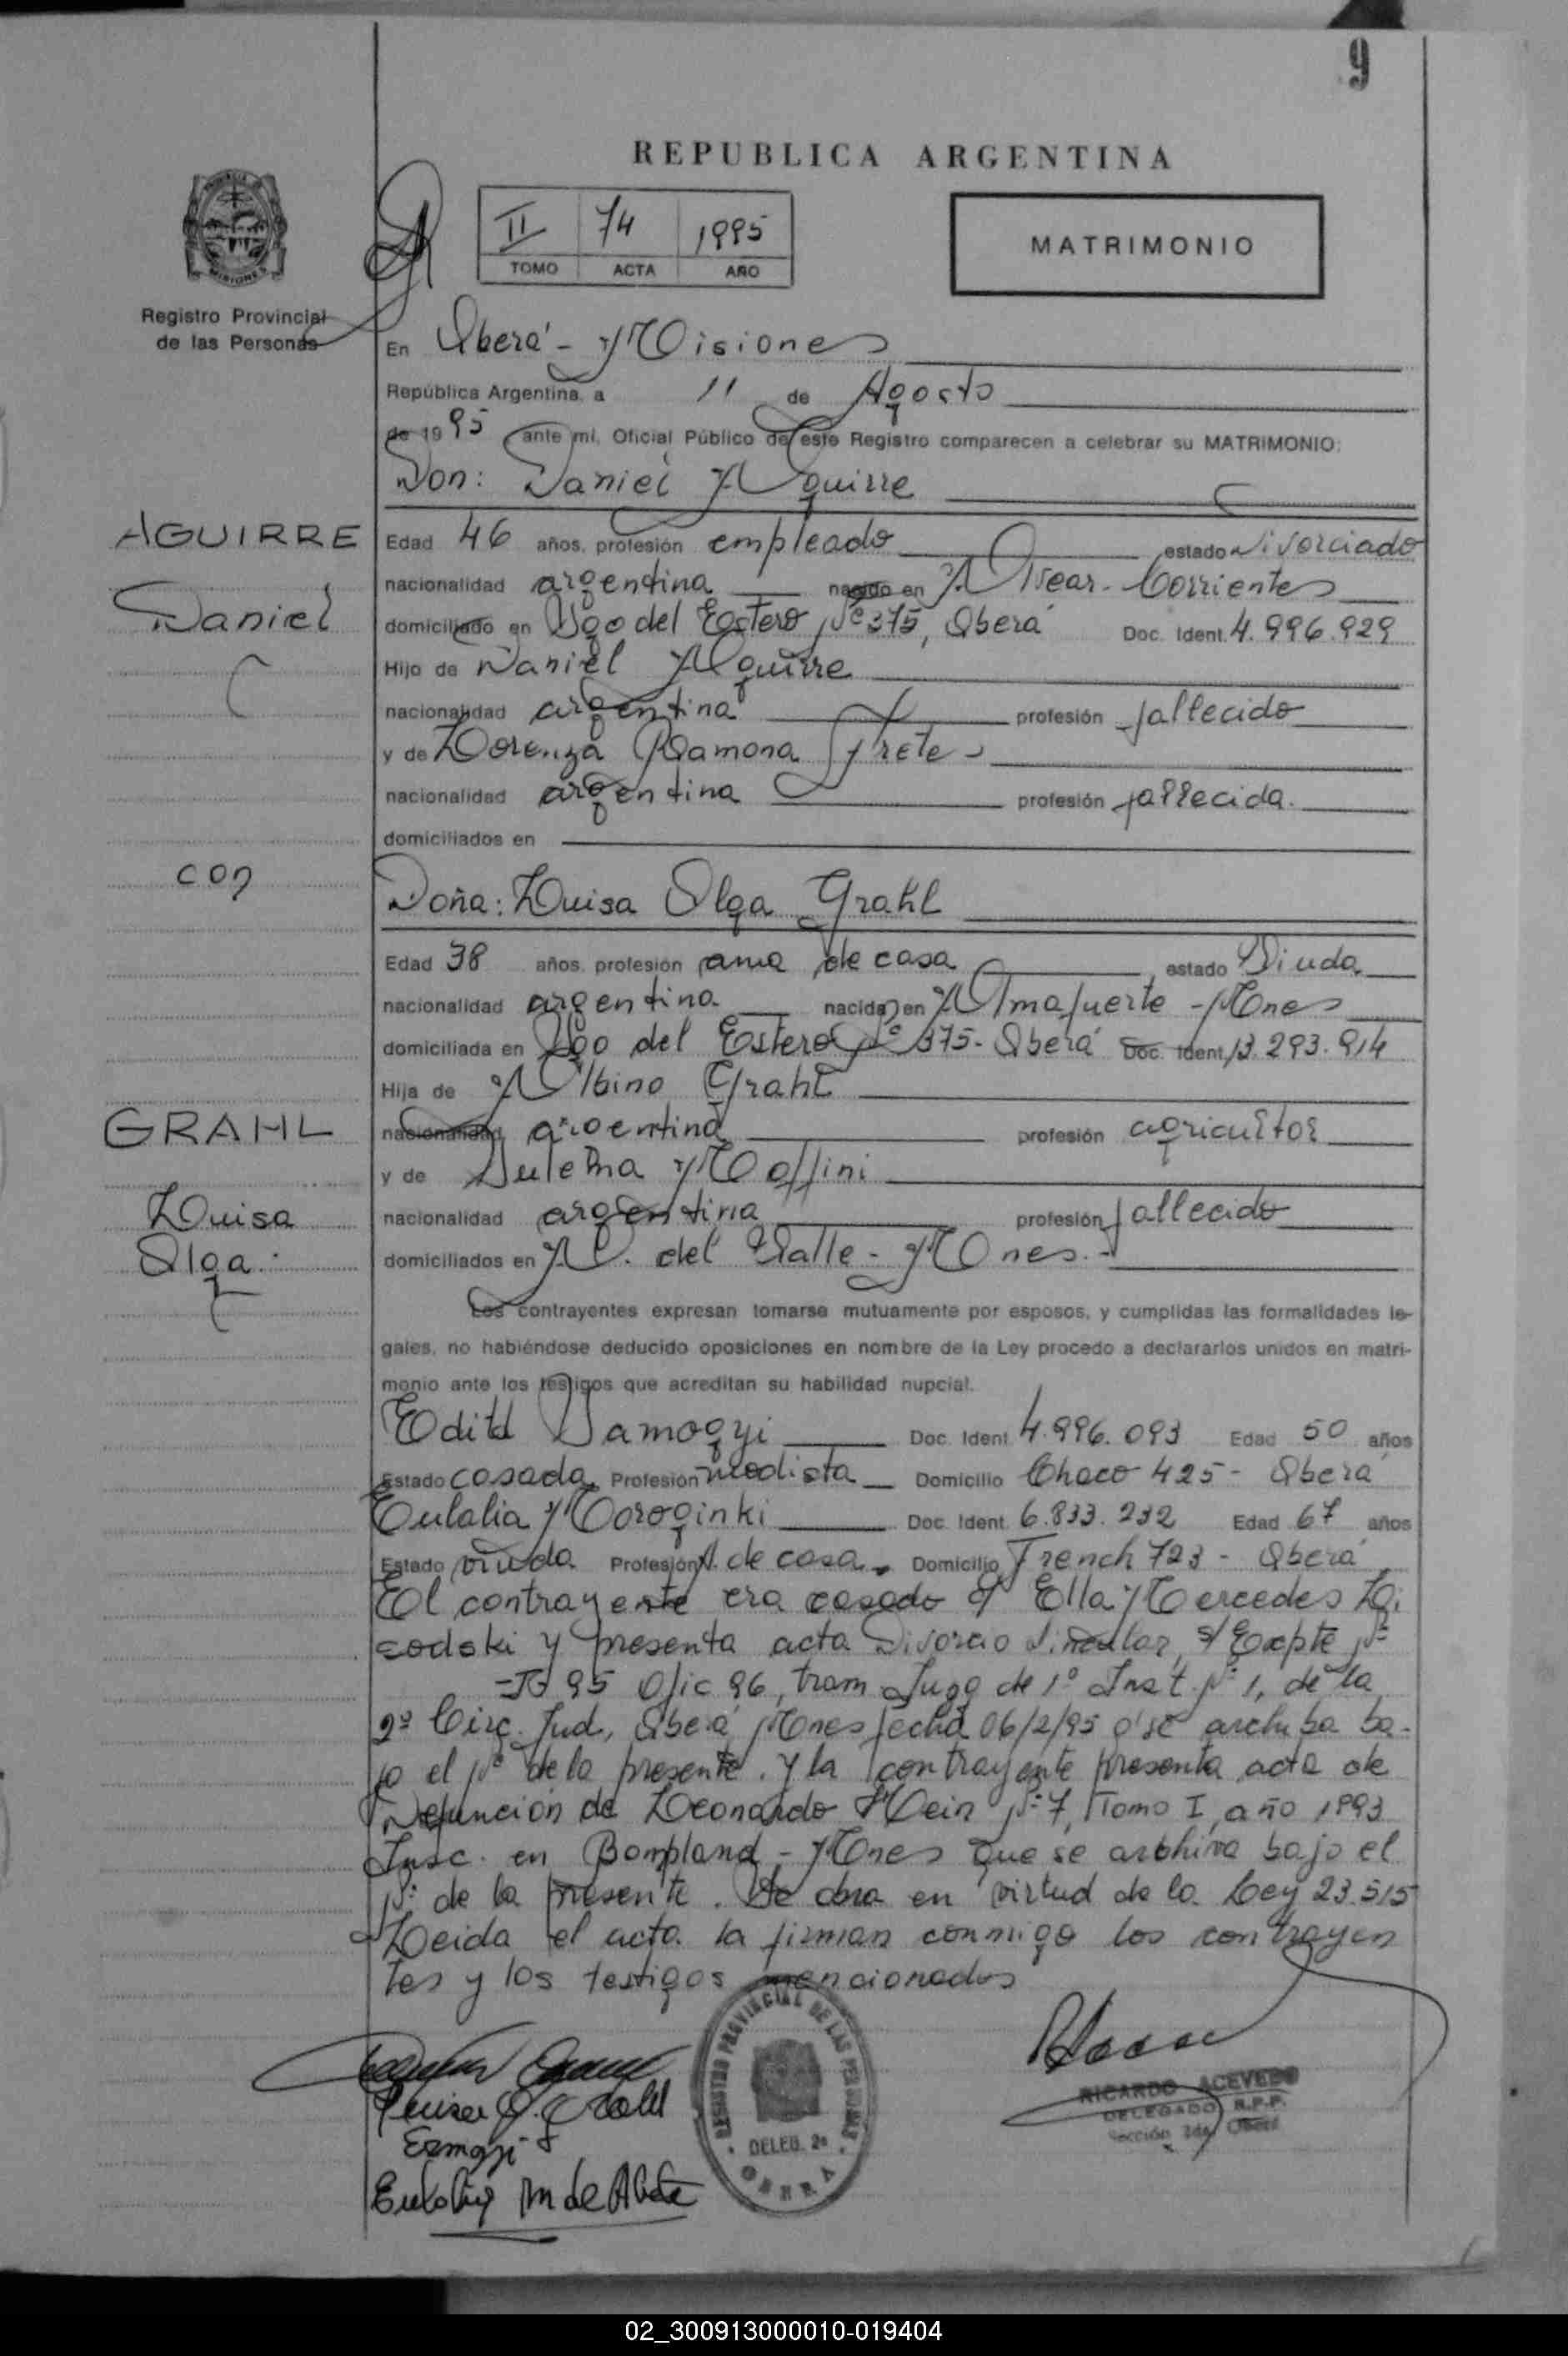 9
REPUBLICA ARGENTINA
II 74 1995
TOMO ACTA AÑO
MATRIMONIO
PROVINCIA DE MISIONES
Registro Provincial
de las Personas
En Oberá - Misiones
República Argentina, a 11 de Agosto
de 1995 ante mí, Oficial Público de este Registro comparecen a celebrar su MATRIMONIO:
Don: Daniel Aguirre
AGUIRRE
Daniel
Edad 46 años, profesión empleado estado Divorciado
nacionalidad argentina nacido en Alvear - Corrientes
domiciliado en Sgo del Estero Nº 375, Oberá Doc. Ident. 4.996.929
Hijo de Daniel Aguirre
nacionalidad argentina profesión fallecido
y de Lorenza Ramona Fretes
nacionalidad argentina profesión fallecida.
domiciliados en
con
Doña: Luisa Olga Grahl
Edad 38 años, profesión ama de casa estado Viuda
nacionalidad argentina nacida en Almafuerte - Mnes
domiciliada en Sgo del Estero Nº 375 - Oberá Doc. Ident. 13.293.914
Hija de Albino Grahl
GRAHL
Luisa
Olga.
nacionalidad argentina profesión agricultor
y de Suelma Moffini
nacionalidad argentina profesión fallecido
domiciliados en A. del Valle - Mnes.-
Los contrayentes expresan tomarse mutuamente por esposos, y cumplidas las formalidades le-
gales, no habiéndose deducido oposiciones en nombre de la Ley procedo a declararlos unidos en matri-
monio ante los testigos que acreditan su habilidad nupcial.
Edith Samogyi Doc. Ident. 4.996.093 Edad 50 años
Estado casada Profesión modista Domicilio Chaco 425 - Oberá
Eulalia Moroginki Doc. Ident. 6.833.232 Edad 67 años
Estado viuda Profesión A. de casa Domicilio French 723 - Oberá
El contrayente era casado c/ Ella Mercedes Li
sodski y presenta acta Divorcio Vincular, s/ Expte Nº
95 Ofic 96, tram Juzg de 1º Inst. Nº 1, de la
2º Circ. Jud, Oberá Mnes fecha 06/2/95 q' se archiba ba-
jo el Nº de la presente. y la contrayente presenta acta de
Defunción de Leonardo Hein Nº 7, Tomo I, año 1993
Insc. en Bompland - Mnes que se archiva bajo el
Nº de la presente. Se obra en virtud de la Ley 23.515
Leida el acta la firman conmigo los contrayen
tes y los testigos mencionados
Luisa O. Grahl
Esmogyi
Eulalia M de
REGISTRO PROVINCIAL DE LAS PERSONAS
DELEG. 2ª
OBERA
RICARDO ACEVEDO
DELEGADO R.P.P.
Sección 2da. Oberá
02_300913000010-019404